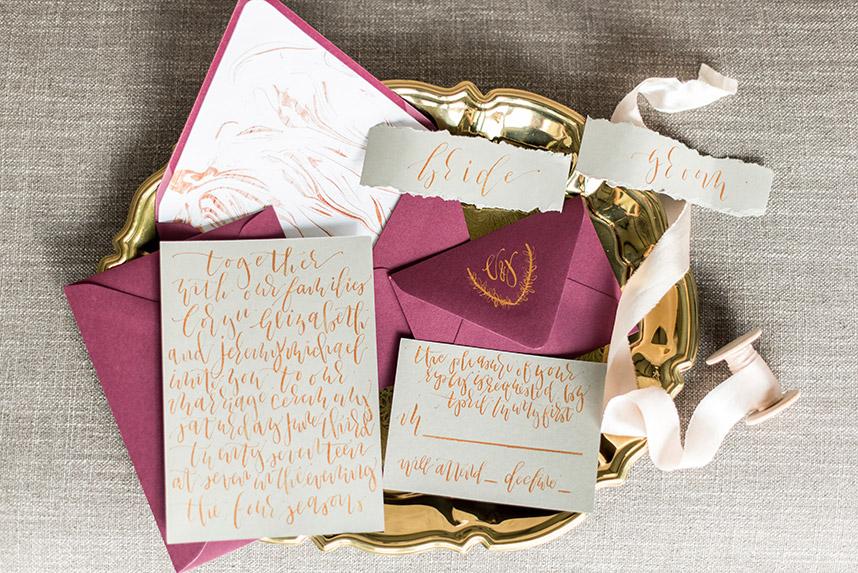 together
with our families
Coryn Elizabeth
and jeremy michael
invite you to our
marriage ceremony
saturday june third
twenty seventeen
at seven in the evening
the four seasons
bride
groom
c&j
the pleasure of your
reply is requested by
April twenty first
M
will attend_ decline_